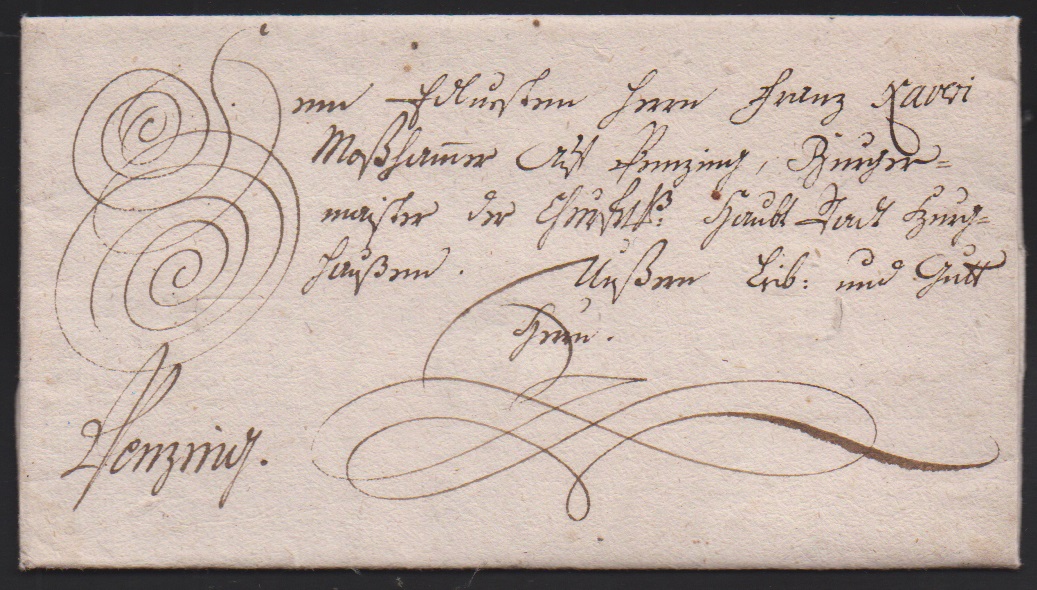 Dem Edlvesten Herrn Franz Xaveri
Moßhamer Auf Penzing, Burger=
maister der Churfrtl: Haubt Stadt Burg=
haußen. Unßern Leib: und Gutt
Herrn.
Penzing.